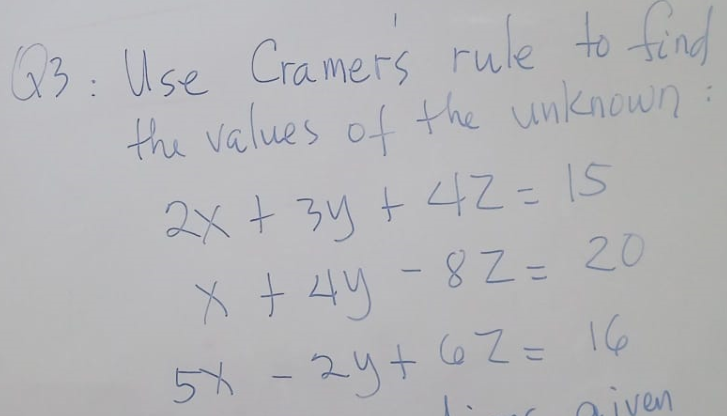 Q3: Use Cramer's rule to find
the values of the unknown:
2x + 3y + 4z = 15
x + 4y - 8z = 20
5x - 2y + 6z = 16
given